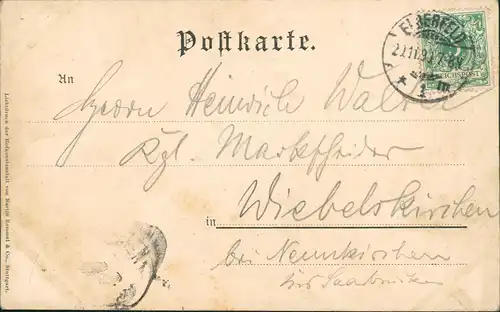 Postkarte.
ELBERFELD
REICHSPOST
An
Herrn Heinrich Walter
Kgl. Markscheider
in Wiebelskirchen
bei Neunkirchen
bei Saarbrücken
Lichtdruck der Hofkunstanstalt von Martin Rommel & Co., Stuttgart.